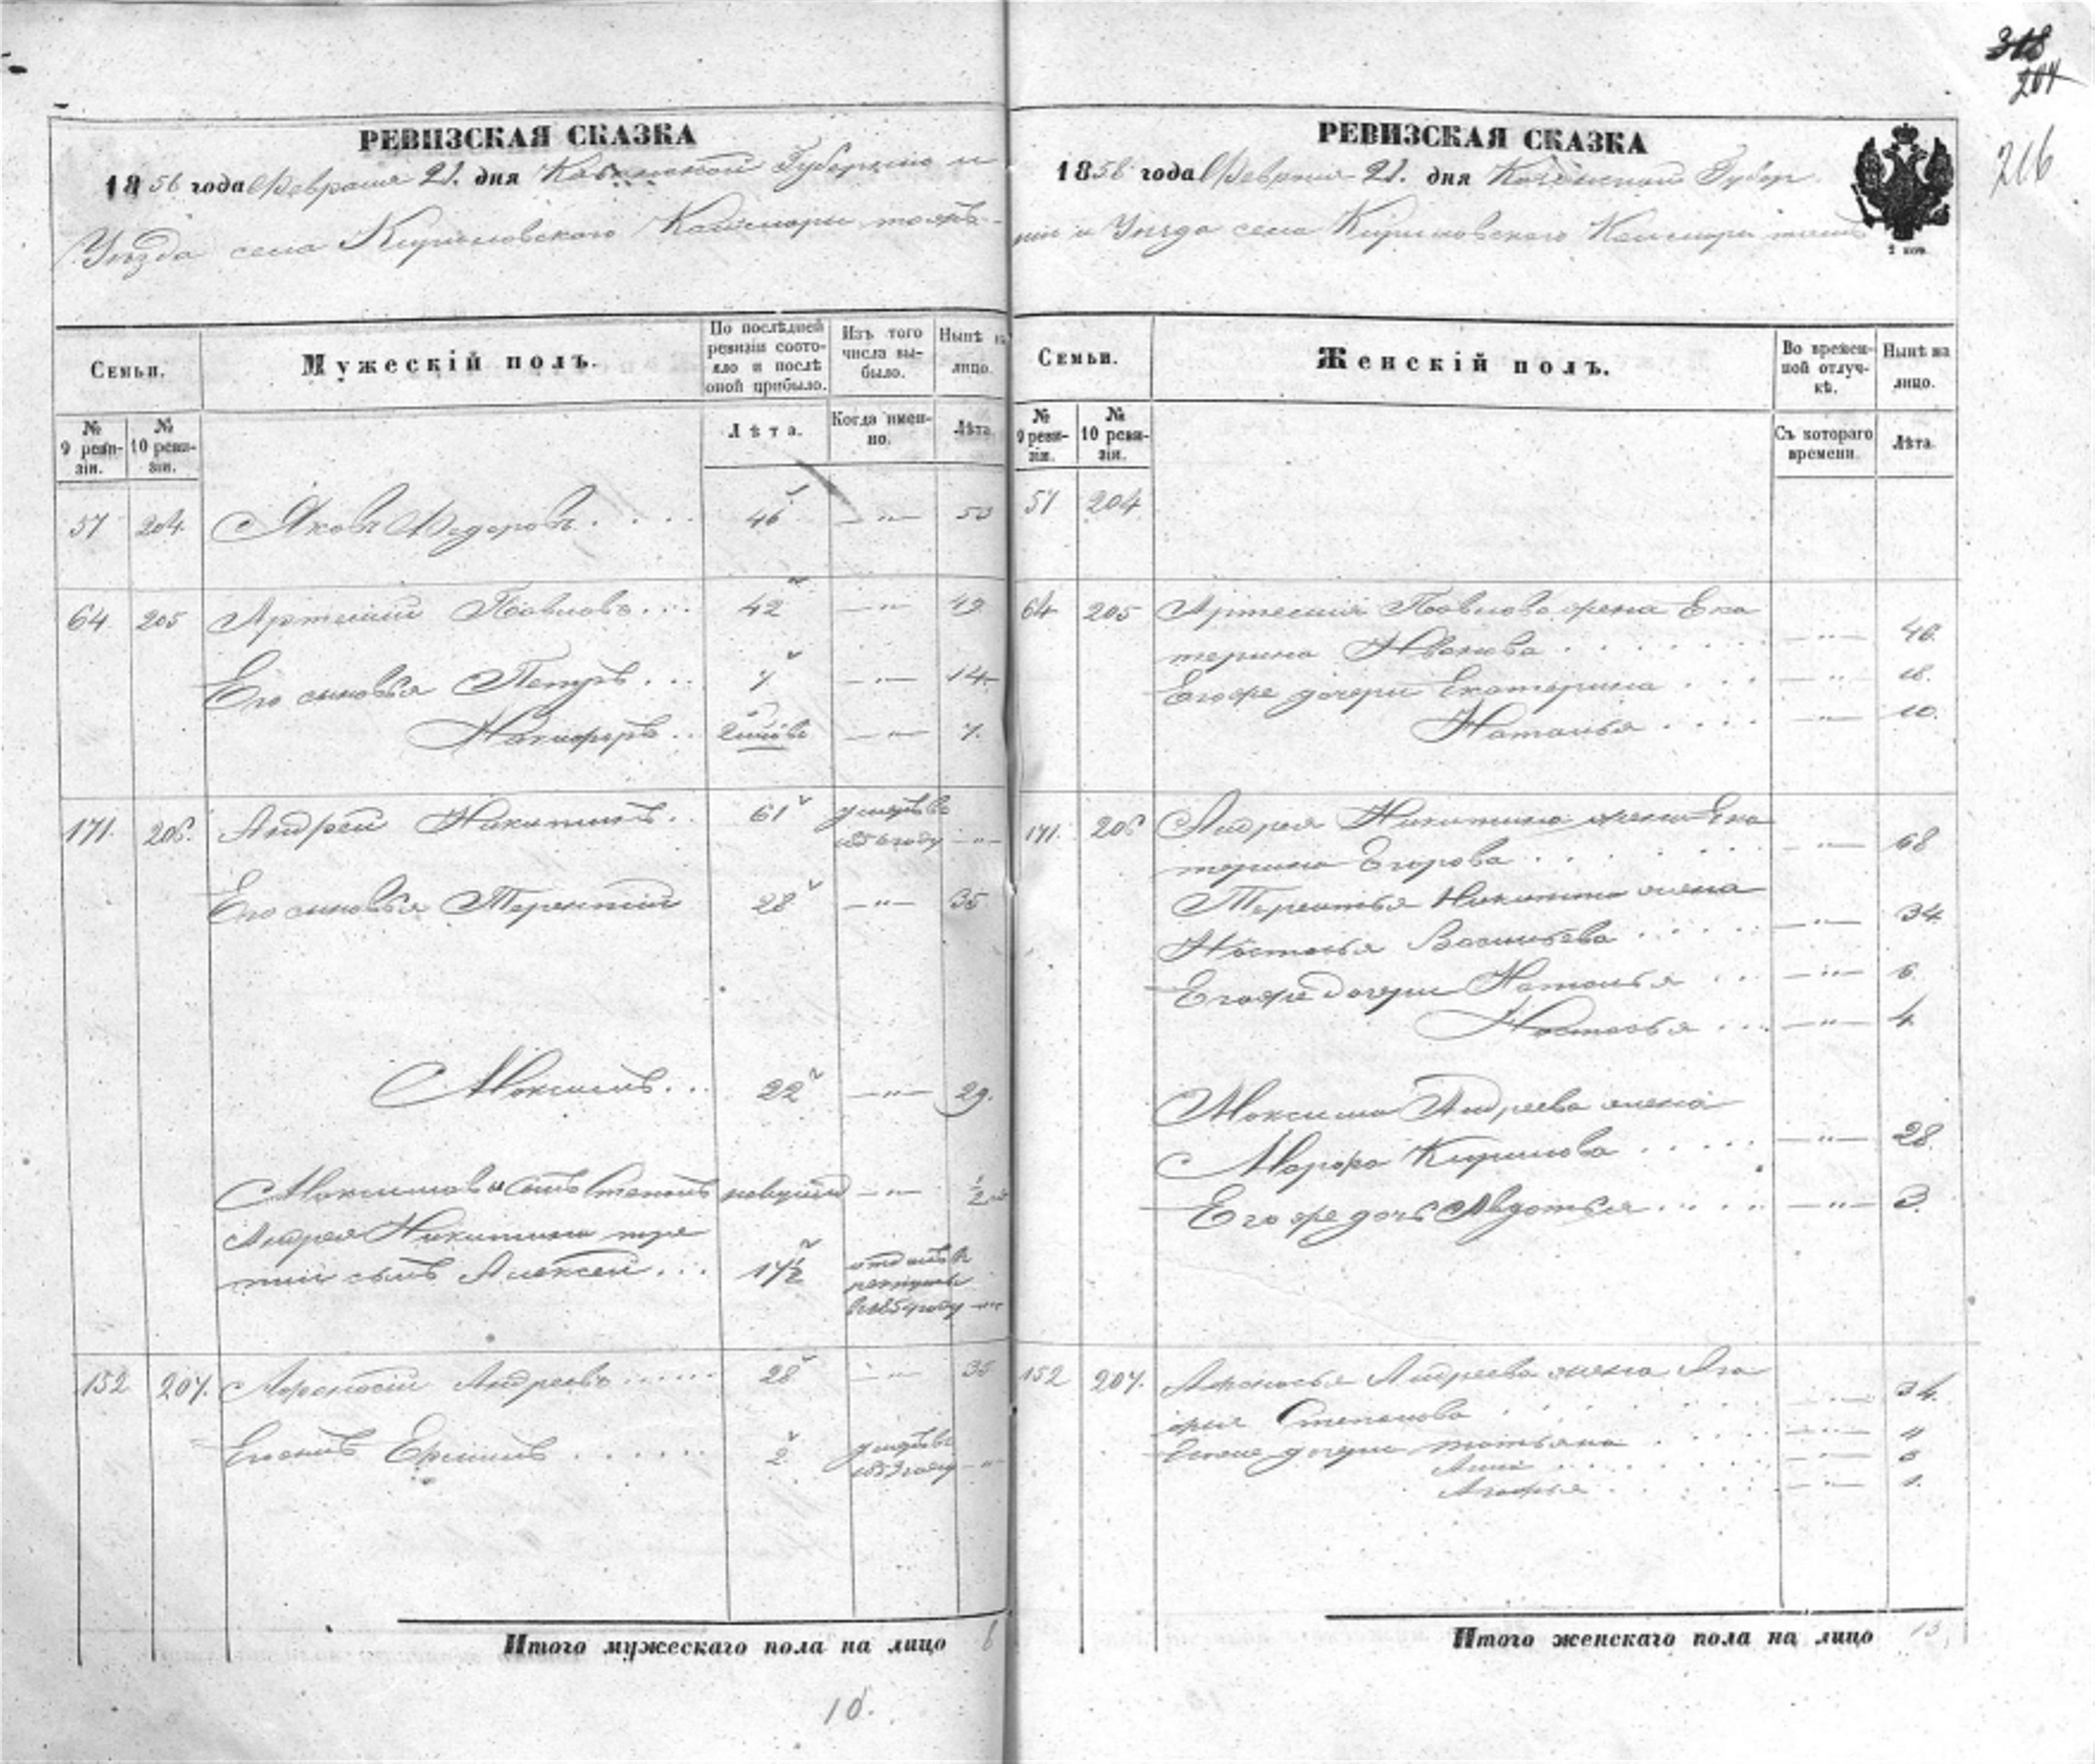 318
204
216
РЕВИЗСКАЯ СКАЗКА
1858 года Февраля 21. дня Казанской Губернiи и
Уѣзда села Кириловского Каймары тожъ
Семьи.
Мужескій полъ.
По послѣдней ревизіи состояло и послѣ оной прибыло.
Изъ того числа выбыло.
Нынѣ на лицо.
№ 9 ревизіи.
№ 10 ревизіи.
Лѣта.
Когда именно.
Лѣта.
57 204. Яковъ Федоровъ.... 46 —"— 53
64 205 Артемій Павловъ.... 42 —"— 49
Его сыновья Петръ... 7 —"— 14.
Никифоръ.. —"— 7.
171. 206. Андрей Никитинъ. 61 умеръ въ
1856 году —"—
Его сыновья Терентій 28 —"— 35
Максимъ... 22 —"— 29.
Максимовъ сынъ Степанъ —"— ½
Андрея Никитина тре
тій сынъ Алексей... 17½ отданъ въ
рекруты
—"—
152 207. Афонасій Андреевъ...... 28 —"— 35
Его сынъ Ермилъ ...... 2 умеръ въ
году —"—
Итого мужескаго пола на лицо 8
10.
РЕВИЗСКАЯ СКАЗКА
1858 года Февраля 21. дня Казанской Губер
ніи и Уѣзда села Кириловского Каймары тожъ
2 коп.
Семьи.
Женскій полъ.
Во временной отлучкѣ.
Нынѣ на лицо.
№ 9 ревизіи.
№ 10 ревизіи.
Съ котораго времени.
Лѣта.
57 204
64 205 Артемія Павлова жена Ека
терина Иванова . . . . . . . —"— 46.
Его же дочери Екатерина . . . —"— 18.
Наталья . . . . —"— 10.
171. 206 Андрея Никитина жена Ека
терина Егорова . . . . . . —"— 68
Терентья Никитина жена
Настасья Васильева . . . . . —"— 34.
Его же дочери Наталья ... —"— 6.
Настасья .... —"— 4.
Максима Андреева жена
Марфа Кирилова . . . . . —"— 28.
Его же дочь Авдотья..... —"— 3.
152 207. Афонасья Андреева жена Ага
фья Степанова . . . . . . —"— 34.
Его же дочери Татьяна . . . . —"—
Анна . . . . . . —"—
Агафья . . . . . —"— 1.
Итого женскаго пола на лицо 13.